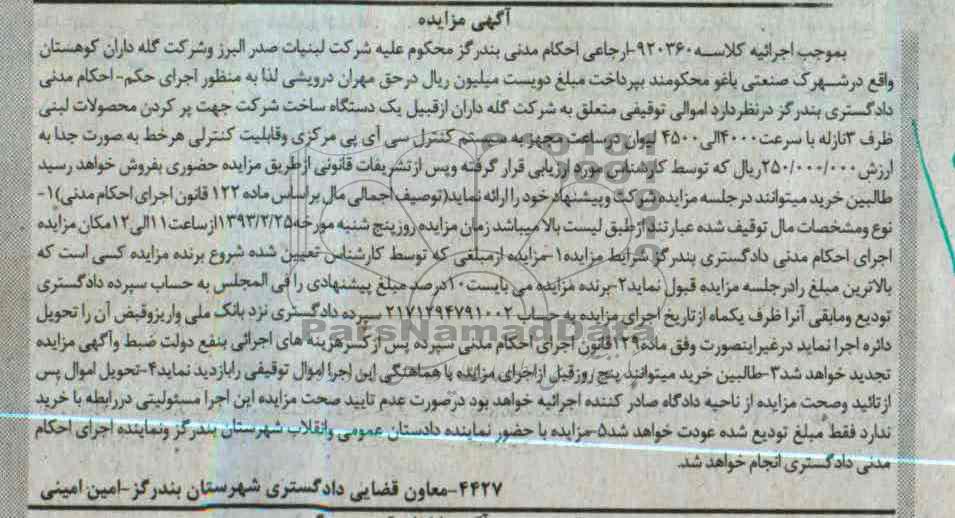 آگهی مزایده
بموجب اجرائیه کلاسه ۹۲۰۳۶۰-ارجاعی احکام مدنی بندرگز محکوم علیه شرکت لبنیات صدر البرز وشرکت گله داران کوهستان
واقع درشهرک صنعتی یاغو محکومند بپرداخت مبلغ دویست میلیون ریال درحق مهران درویشی لذا به منظور اجرای حکم-احکام مدنی
دادگستری بندرگز درنظردارد اموالی توقیفی متعلق به شرکت گله داران ازقبیل یک دستگاه ساخت شرکت جهت پر کردن محصولات لبنی
ظرف ۳تازله با سرعت ۴۰۰۰الی ۴۵۰۰ لیوان درساعت مجهز به سیستم کنترل سی آی پی مرکزی وقابلیت کنترلی هرخط به صورت جدا به
ارزش ۲۵۰/۰۰۰/۰۰۰ریال که توسط کارشناس مورد ارزیابی قرار گرفته وپس ازتشریفات قانونی ازطریق مزایده حضوری بفروش خواهد رسید
طالبین خرید میتوانند درجلسه مزایده شرکت وپیشنهاد خود را ارائه نماید(توصیف اجمالی مال براساس ماده ۱۲۲ قانون اجرای احکام مدنی)۱-
نوع ومشخصات مال توقیف شده عبارتند ازطبق لیست بالا میباشد زمان مزایده روزپنج شنبه مورخه ۱۳۹۳/۲/۲۵ازساعت ۱۱الی ۱۲مکان مزایده
اجرای احکام مدنی دادگستری بندرگز شرایط مزایده۱-مزایده ازمبلغی که توسط کارشناس تعیین شده شروع برنده مزایده کسی است که
بالاترین مبلغ رادرجلسه مزایده قبول نماید۲-برنده مزایده می بایست۱۰درصد مبلغ پیشنهادی را فی المجلس به حساب سپرده دادگستری
تودیع ومابقی آنرا ظرف یکماه ازتاریخ اجرای مزایده به حساب ۲۱۷۱۲۹۴۷۹۱۰۰۲ سپرده دادگستری نزد بانک ملی واریزوقبض آن را تحویل
دائره اجرا نماید درغیراینصورت وفق ماده۱۲۹قانون اجرای احکام مدنی سپرده پس ازکسرهزینه های اجرائی بنفع دولت ضبط وآگهی مزایده
تجدید خواهد شد۳-طالبین خرید میتوانند پنج روزقبل ازاجرای مزایده با هماهنگی این اجرا اموال توقیفی رابازدید نماید۴-تحویل اموال پس
ازتائید وصحت مزایده از ناحیه دادگاه صادر کننده اجرائیه خواهد بود درصورت عدم تایید صحت مزایده این اجرا مسئولیتی دررابطه با خرید
ندارد فقط مبلغ تودیع شده عودت خواهد شد۵-مزایده با حضور نماینده دادستان عمومی وانقلاب شهرستان بندرگز ونماینده اجرای احکام
مدنی دادگستری انجام خواهد شد.
۴۴۲۷-معاون قضایی دادگستری شهرستان بندرگز-امین امینی
ParsNamadData